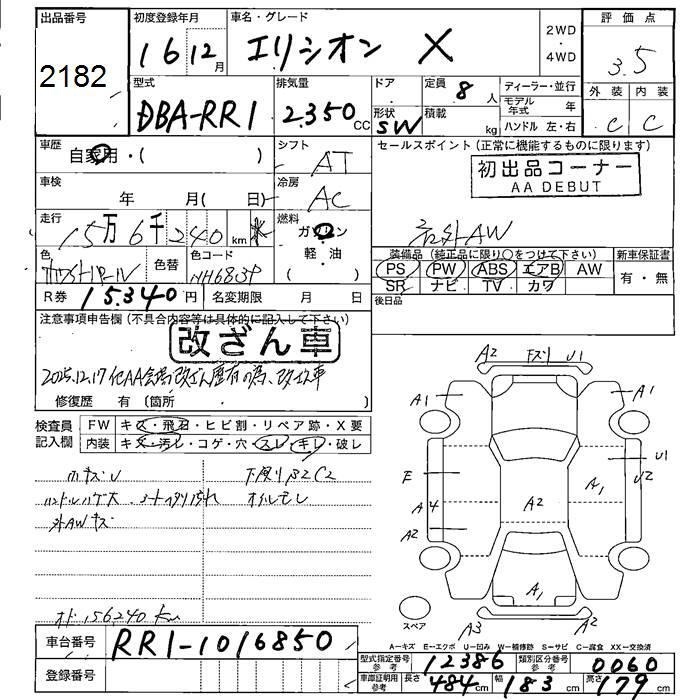 出品番号
2182
初度登録年月
16 12月
車名・グレード
エリシオン X
2WD
・
4WD
評価点
3.5
型式
DBA-RR1
排気量
2.350CC
ドア
形状
SW
定員 8人
積載 kg
ディーラー・並行
モデル年式 年
ハンドル 左・右
外装 内装
C C
車歴
自家用・( )
シフト
AT
セールスポイント (正常に機能するものに限ります)
初出品コーナー
AA DEBUT
車検
年 月( 日)
冷房
AC
走行
15万6千240km
燃料
ガソリン
軽・油
( )
社外AW
色
色替
色コード
NH683P
装備品 (純正品に限り○をつけて下さい)
PS PW ABS エアB AW
SR ナビ TV カワ
新車保証書
有・無
R券 15.340円
名変期限 月 日
後日品
注意事項申告欄 (不具合内容等は具体的に記入して下さい)
改ざん車
2025.12.17 他AA会場改ざん歴有の為、改ざん車
修復歴 有 (箇所 )
検査員
記入欄
FW キズ・飛石・ヒビ割・リペア跡・X要
内装 キズ・汚レ・コゲ・穴・スレ・キレ・破レ
小キズU
下廻りサビC2
ハンドルハゲ大
オイルモレ
外AWキズ
オド156240km
A2 下ズリ U1
A1 A1
E U1
A4 A2 A1 U2
A2
A1
A3 A2
スペア
A-キズ E-エクボ U-凹み W-補修跡 S-サビ C-腐食 XX-交換済
車台番号 RR1-1016850
型式指定番号 参考 12386
類別区分番号 参考 0060
登録番号
車庫証明用 参考 長さ 484cm 幅 183cm 高さ 179cm